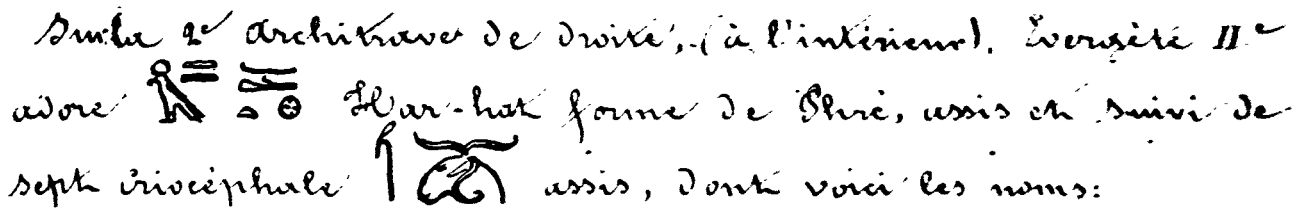 Sur la 2e architrave de droite, (à l'intérieur). Evergète IIe
adore Har-hat forme de Phré, assis et suivi de
sept criocéphale assis, dont voici les noms: